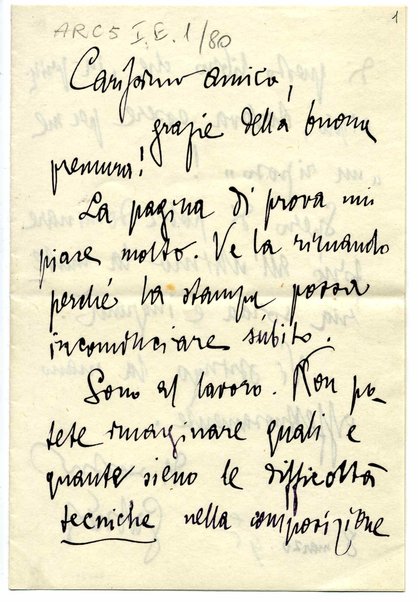 1
ARC5 I.E.1/80
Carissimo amico,
grazie della buona
premura!
La pagina di prova mi
piace molto. Ve la rimando
perché la stampa possa
incominciare subito.
Sono al lavoro. Non po-
tete immaginare quali e
quante sieno le difficoltà
tecniche nella composizione